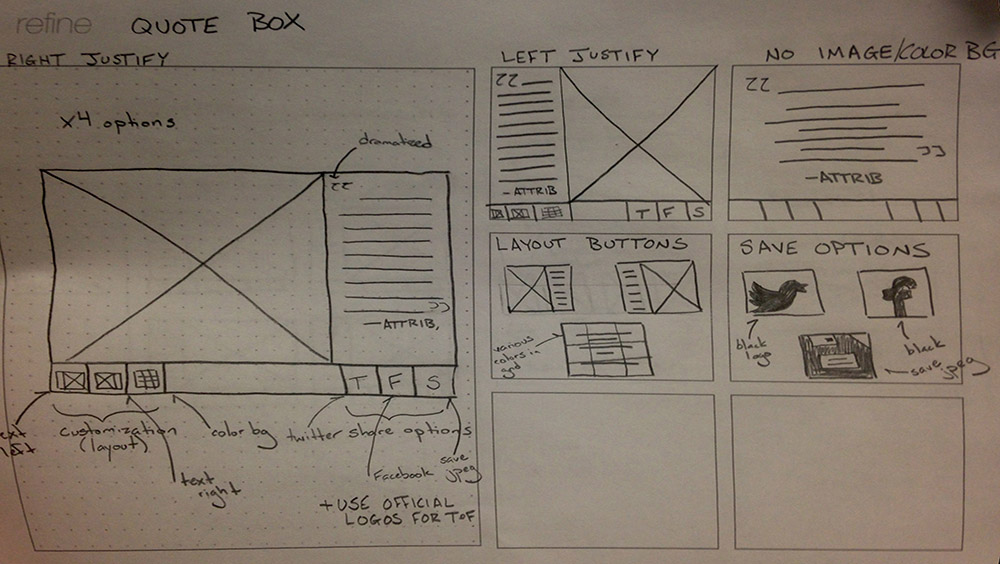 refine QUOTE BOX
RIGHT JUSTIFY
x4 options
dramatized
—ATTRIB,
T F S
customization
(layout)
color bg
twitter
share options
text
right
Facebook
save
jpeg
+ USE OFFICIAL
LOGOS FOR T+F
LEFT JUSTIFY
—ATTRIB
T F S
NO IMAGE/COLOR BG
—ATTRIB
LAYOUT BUTTONS
various
colors in
grid
SAVE OPTIONS
black
logo
black
save jpeg